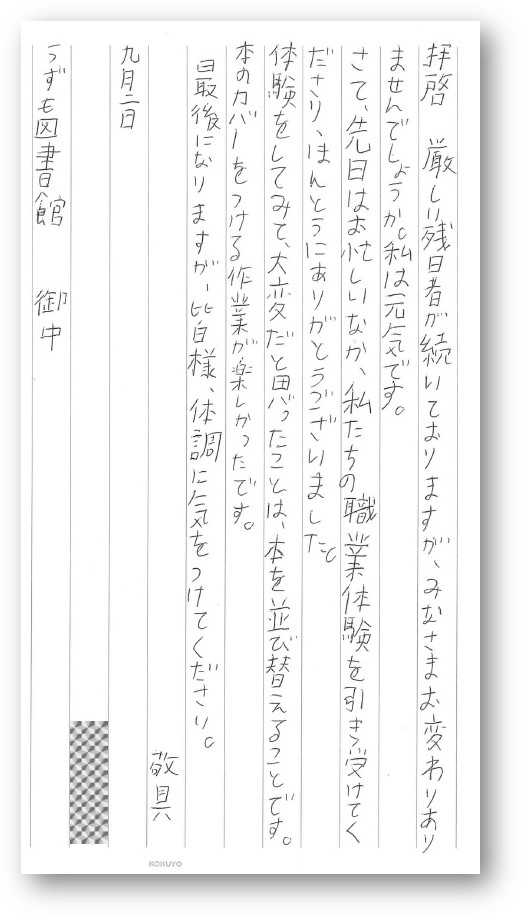 拝啓　厳しい残暑が続いておりますが、みなさまお変わりあり
ませんでしょうか。私は元気です。
さて、先日はお忙しいなか、私たちの職業体験を引き受けてく
ださり、ほんとうにありがとうございました。
体験をしてみて、大変だと思ったことは、本を並び替えることです。
本のカバーをつける作業が楽しかったです。
最後になりますが、皆様、体調に気をつけてください。
敬具
九月二日
うずも図書館　御中
KOKUYO